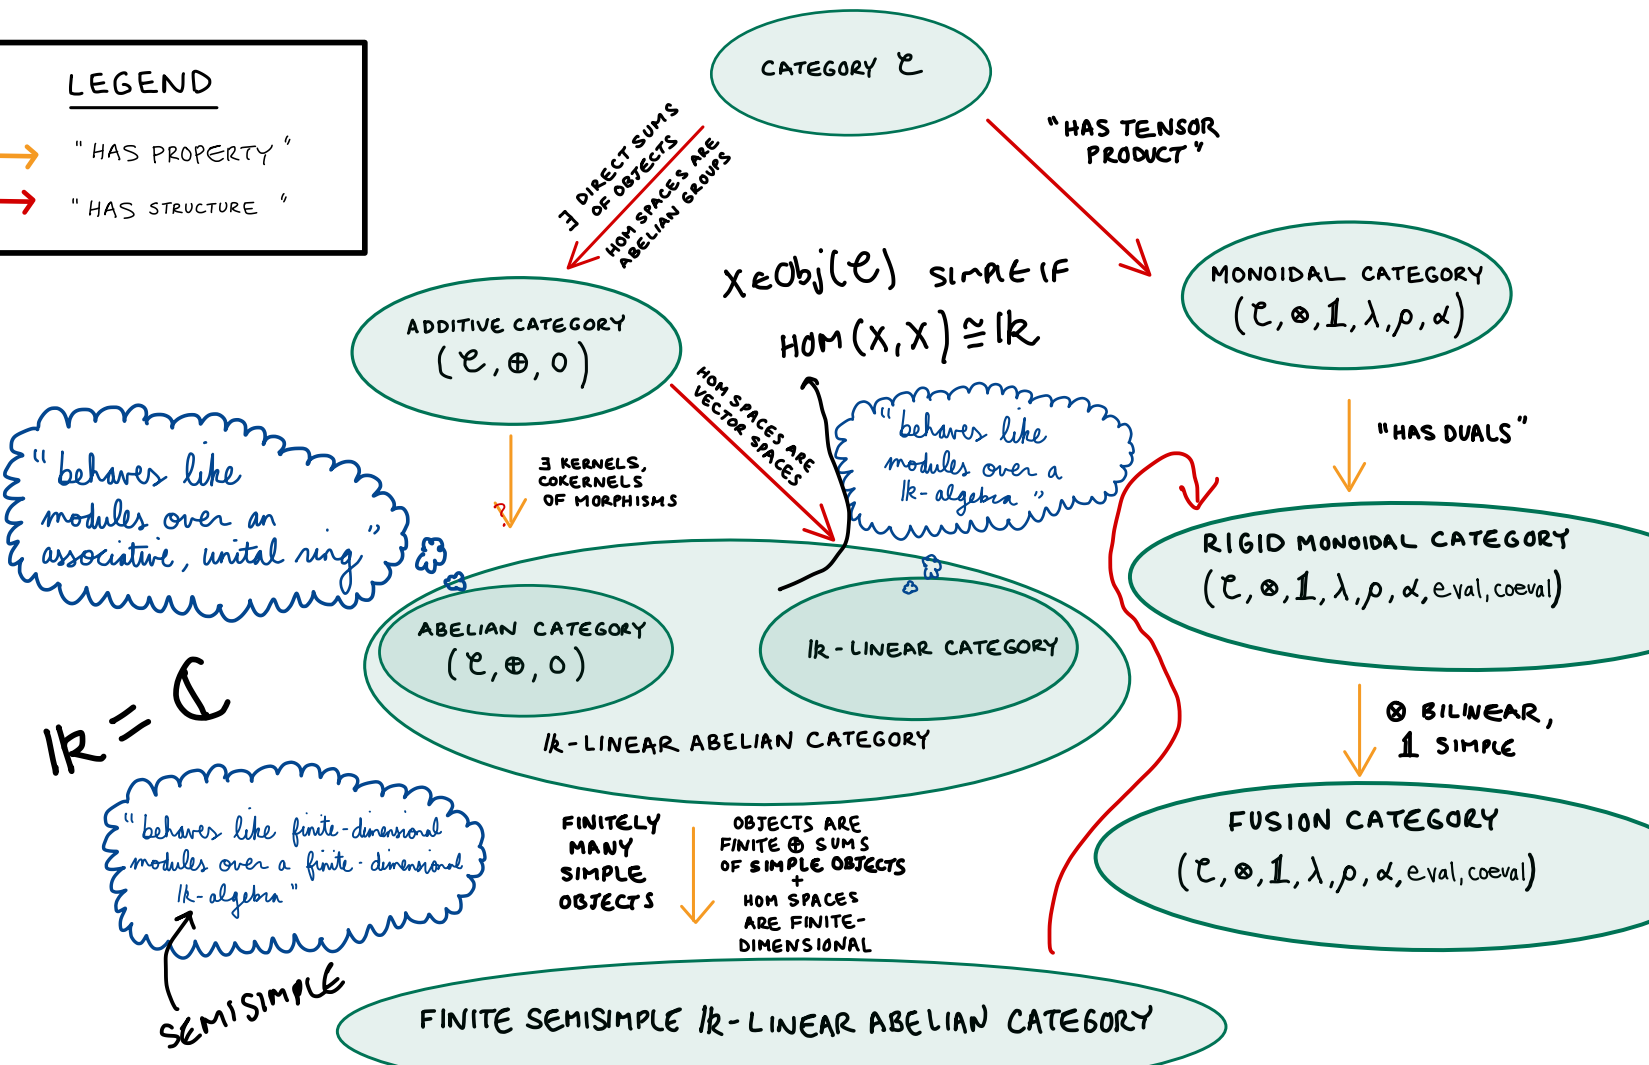 LEGEND
"HAS PROPERTY"
"HAS STRUCTURE"
CATEGORY 𝒞
∃ DIRECT SUMS
OF OBJECTS
HOM SPACES ARE
ABELIAN GROUPS
"HAS TENSOR
PRODUCT"
X∈Obj(𝒞) SIMPLE IF
HOM(X,X)≅𝕜
MONOIDAL CATEGORY
(𝒞,⊗,𝟙,λ,ρ,α)
ADDITIVE CATEGORY
(𝒞,⊕,0)
HOM SPACES ARE
VECTOR SPACES
∃ KERNELS,
COKERNELS
OF MORPHISMS
?
"behaves like
modules over a
𝕜-algebra"
"HAS DUALS"
"behaves like
modules over an
associative, unital ring"
RIGID MONOIDAL CATEGORY
(𝒞,⊗,𝟙,λ,ρ,α,eval,coeval)
ABELIAN CATEGORY
(𝒞,⊕,0)
𝕜-LINEAR CATEGORY
𝕜-LINEAR ABELIAN CATEGORY
𝕜=ℂ
⊗ BILINEAR,
𝟙 SIMPLE
"behaves like finite-dimensional
modules over a finite-dimensional
𝕜-algebra"
SEMISIMPLE
FINITELY
MANY
SIMPLE
OBJECTS
OBJECTS ARE
FINITE ⊕ SUMS
OF SIMPLE OBJECTS
+
HOM SPACES
ARE FINITE-
DIMENSIONAL
FUSION CATEGORY
(𝒞,⊗,𝟙,λ,ρ,α,eval,coeval)
FINITE SEMISIMPLE 𝕜-LINEAR ABELIAN CATEGORY